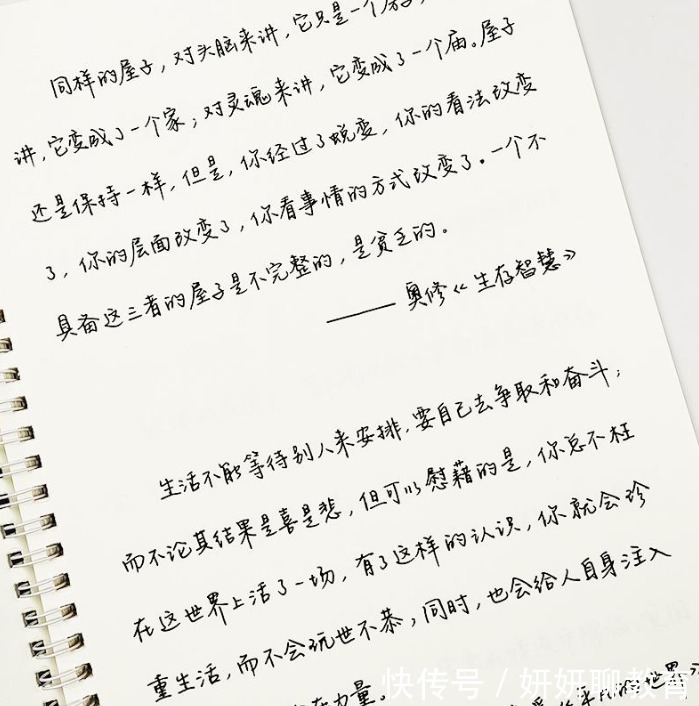 同样的屋子，对头脑来讲，它只是一个
讲，它变成了一个家；对灵魂来讲，它变成了一个庙。屋子
还是保持一样，但是，你经过了蜕变，你的看法改变
了，你的层面改变了，你看事情的方式改变了。一个不
具备这三者的屋子是不完整的，是贫乏的。
——奥修《生存智慧》
生活不能等待别人来安排，要自己去争取和奋斗；
而不论其结果是喜是悲，但可以慰藉的是，你总不枉
在这世界上活了一场，有了这样的认识，你就会珍
重生活，而不会玩世不恭；同时，也会给人自身注入
力量。
快传号 / 妍妍聊教育